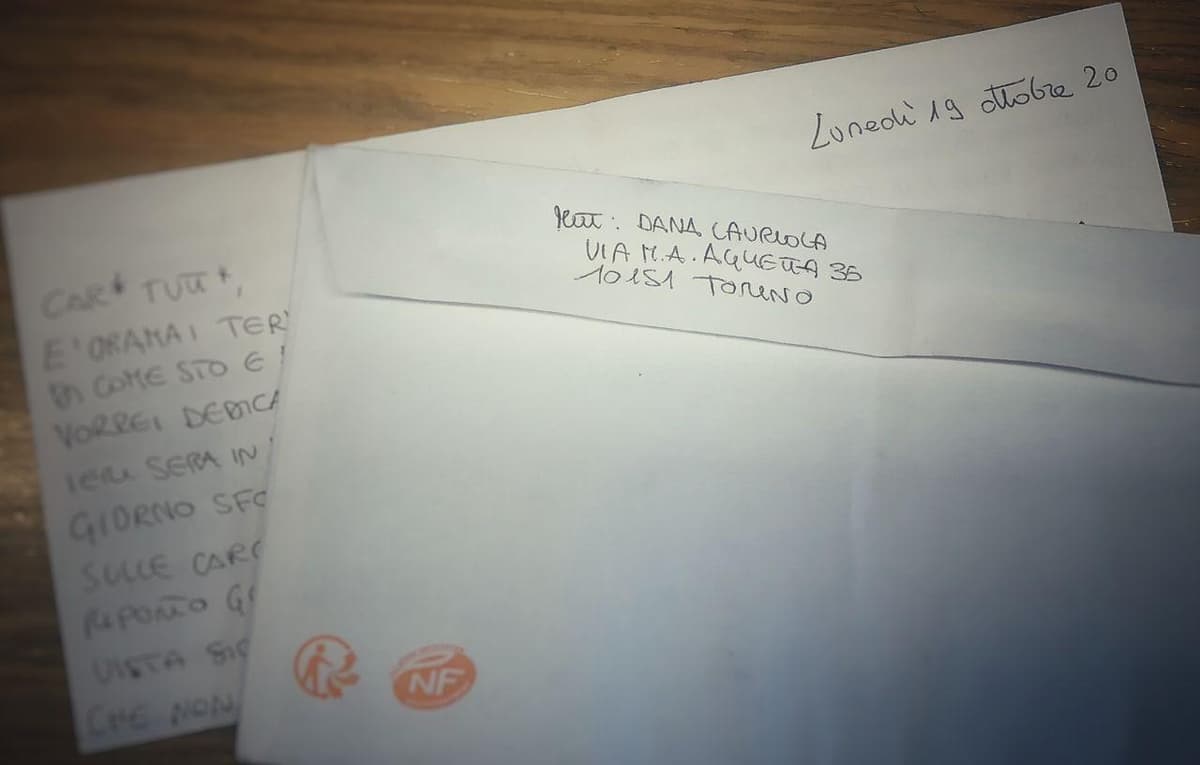 Lunedì 19 ottobre 20
Mitt: DANA LAURIOLA
VIA M.A. AGLIETTA 35
10151 TORINO
CAR* TUTT*,
E' ORAMAI TER
DI COME STO E
VORREI DEDICA
IERI SERA IN
GIORNO SFO
SULLE CARC
RIPORTO
VISTA
CHE NON
NF